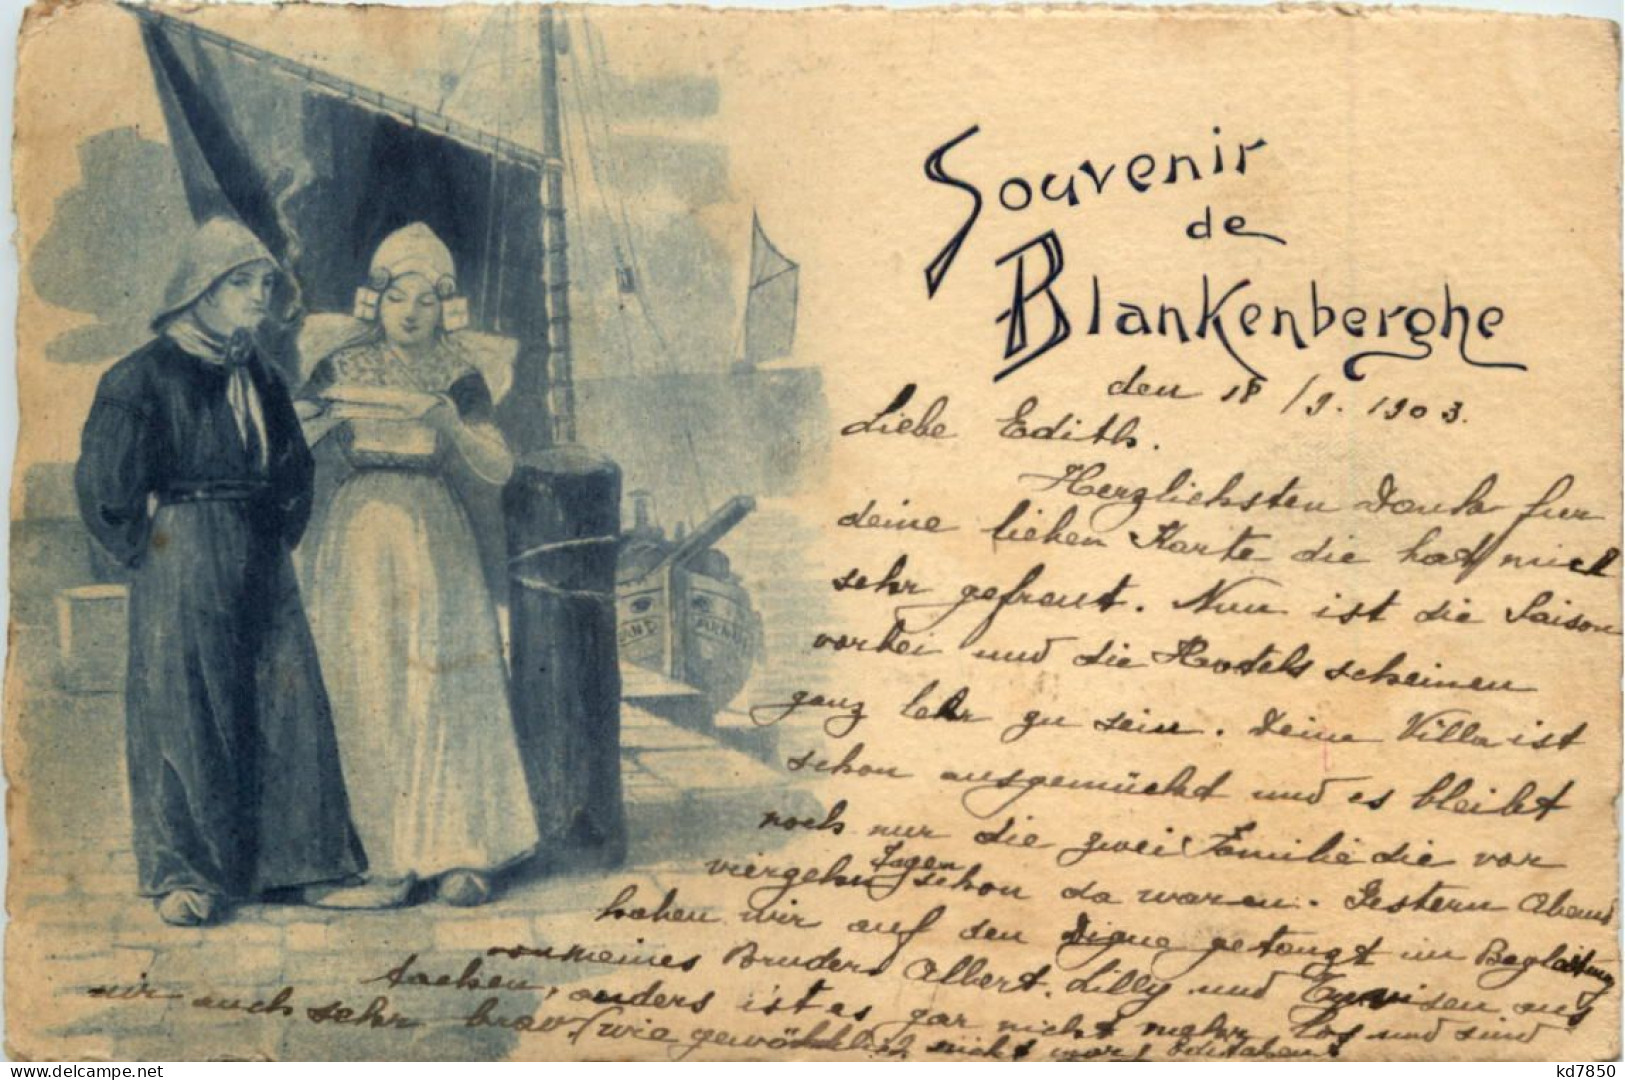 Souvenir
de
Blankenberghe
den 18/9. 1903.
Liebe Edith.
Herzlichsten Dank fur
deine lieben Karte die hat mich
sehr gefreut. Nun ist die Saison
vorbei und die Hotels scheinen
ganz lehr zu sein. Deine Villa ist
schon ausgemückt und es bleibt
noch nur die zwei Familie die vor
viergehn Tagen schon da waren. Gestern Abend
haben wir auf den Digue getangt im Begleitung
von meines Bruders Albert. Lilly und
tachen, anders ist es gar nicht mehr los und sind
wir auch sehr brav (wie gewöhnlich nicht war)
kd7850